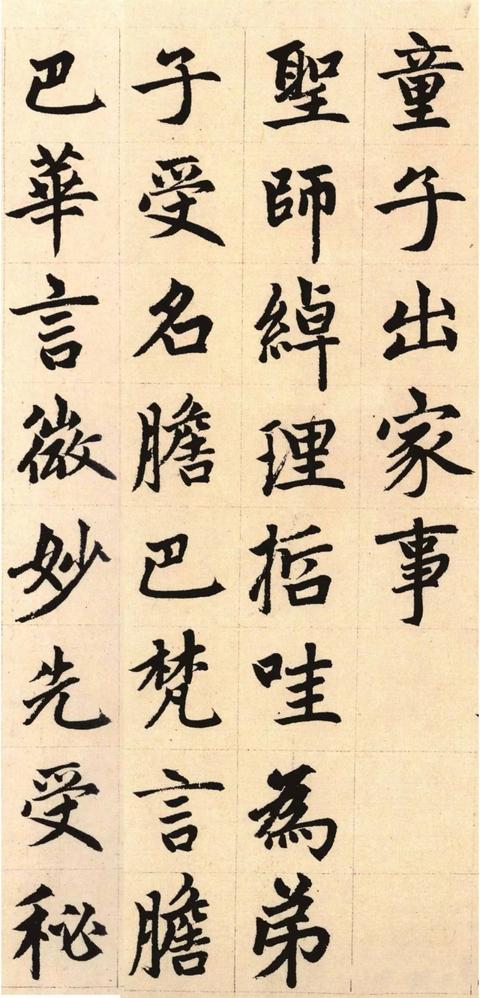 童子出家事
聖師綽理哲哇為弟
子受名膽巴梵言膽
巴華言微妙先受秘